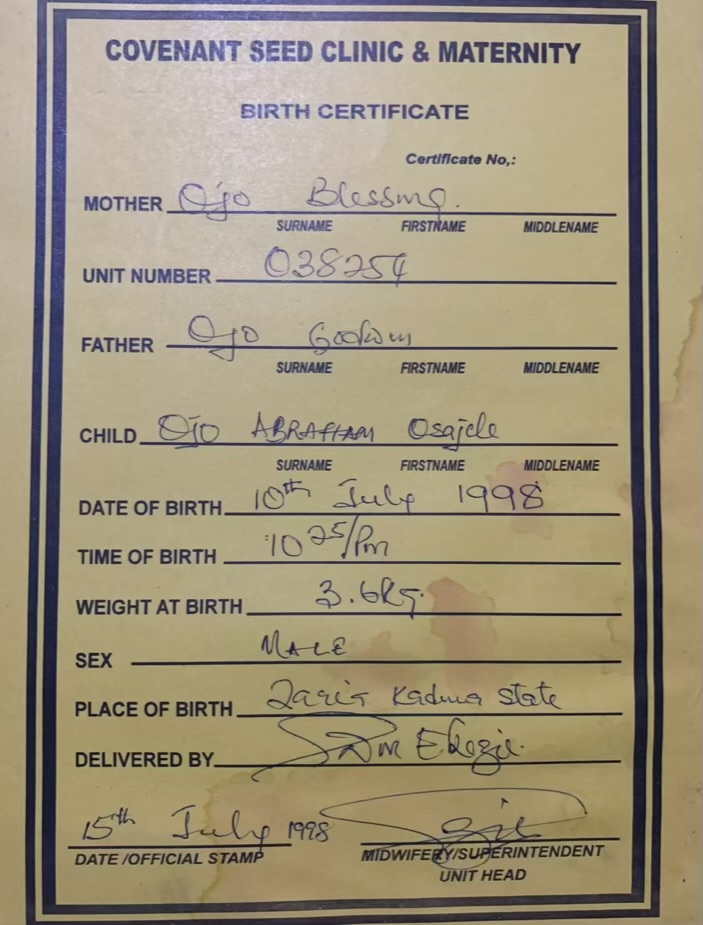 COVENANT SEED CLINIC & MATERNITY
BIRTH CERTIFICATE
Certificate No,:
MOTHER Ojo Blessing.
SURNAME FIRSTNAME MIDDLENAME
UNIT NUMBER 038254
FATHER Ojo Godwin
SURNAME FIRSTNAME MIDDLENAME
CHILD OJO ABRAHAM Osajele
SURNAME FIRSTNAME MIDDLENAME
DATE OF BIRTH 10th July 1998
TIME OF BIRTH 10 25/Pm
WEIGHT AT BIRTH 3.6kg.
SEX MALE
PLACE OF BIRTH Zaria Kaduna State
DELIVERED BY
15th July 1998
DATE /OFFICIAL STAMP MIDWIFERY/SUPERINTENDENT
UNIT HEAD